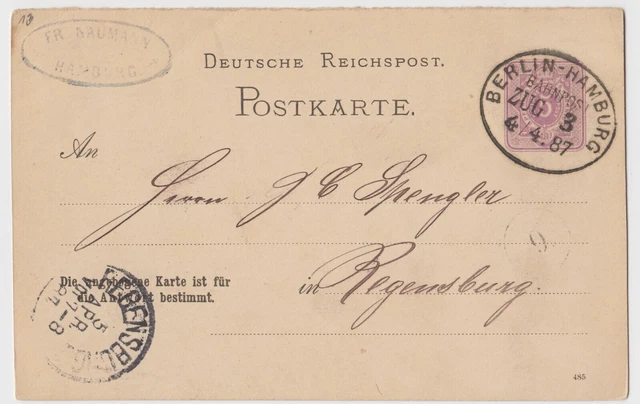 13
FR. BAUMANN
HAMBURG.
DEUTSCHE REICHSPOST.
POSTKARTE.
BERLIN-HAMBURG
BAHNPOST
ZUG 3
4 4. 87
An
Herrn J C Spengler
9
in Regensburg.
Die angebogene Karte ist für
die Antwort bestimmt.
REGENSBURG
5
APR.
7-8
87
485